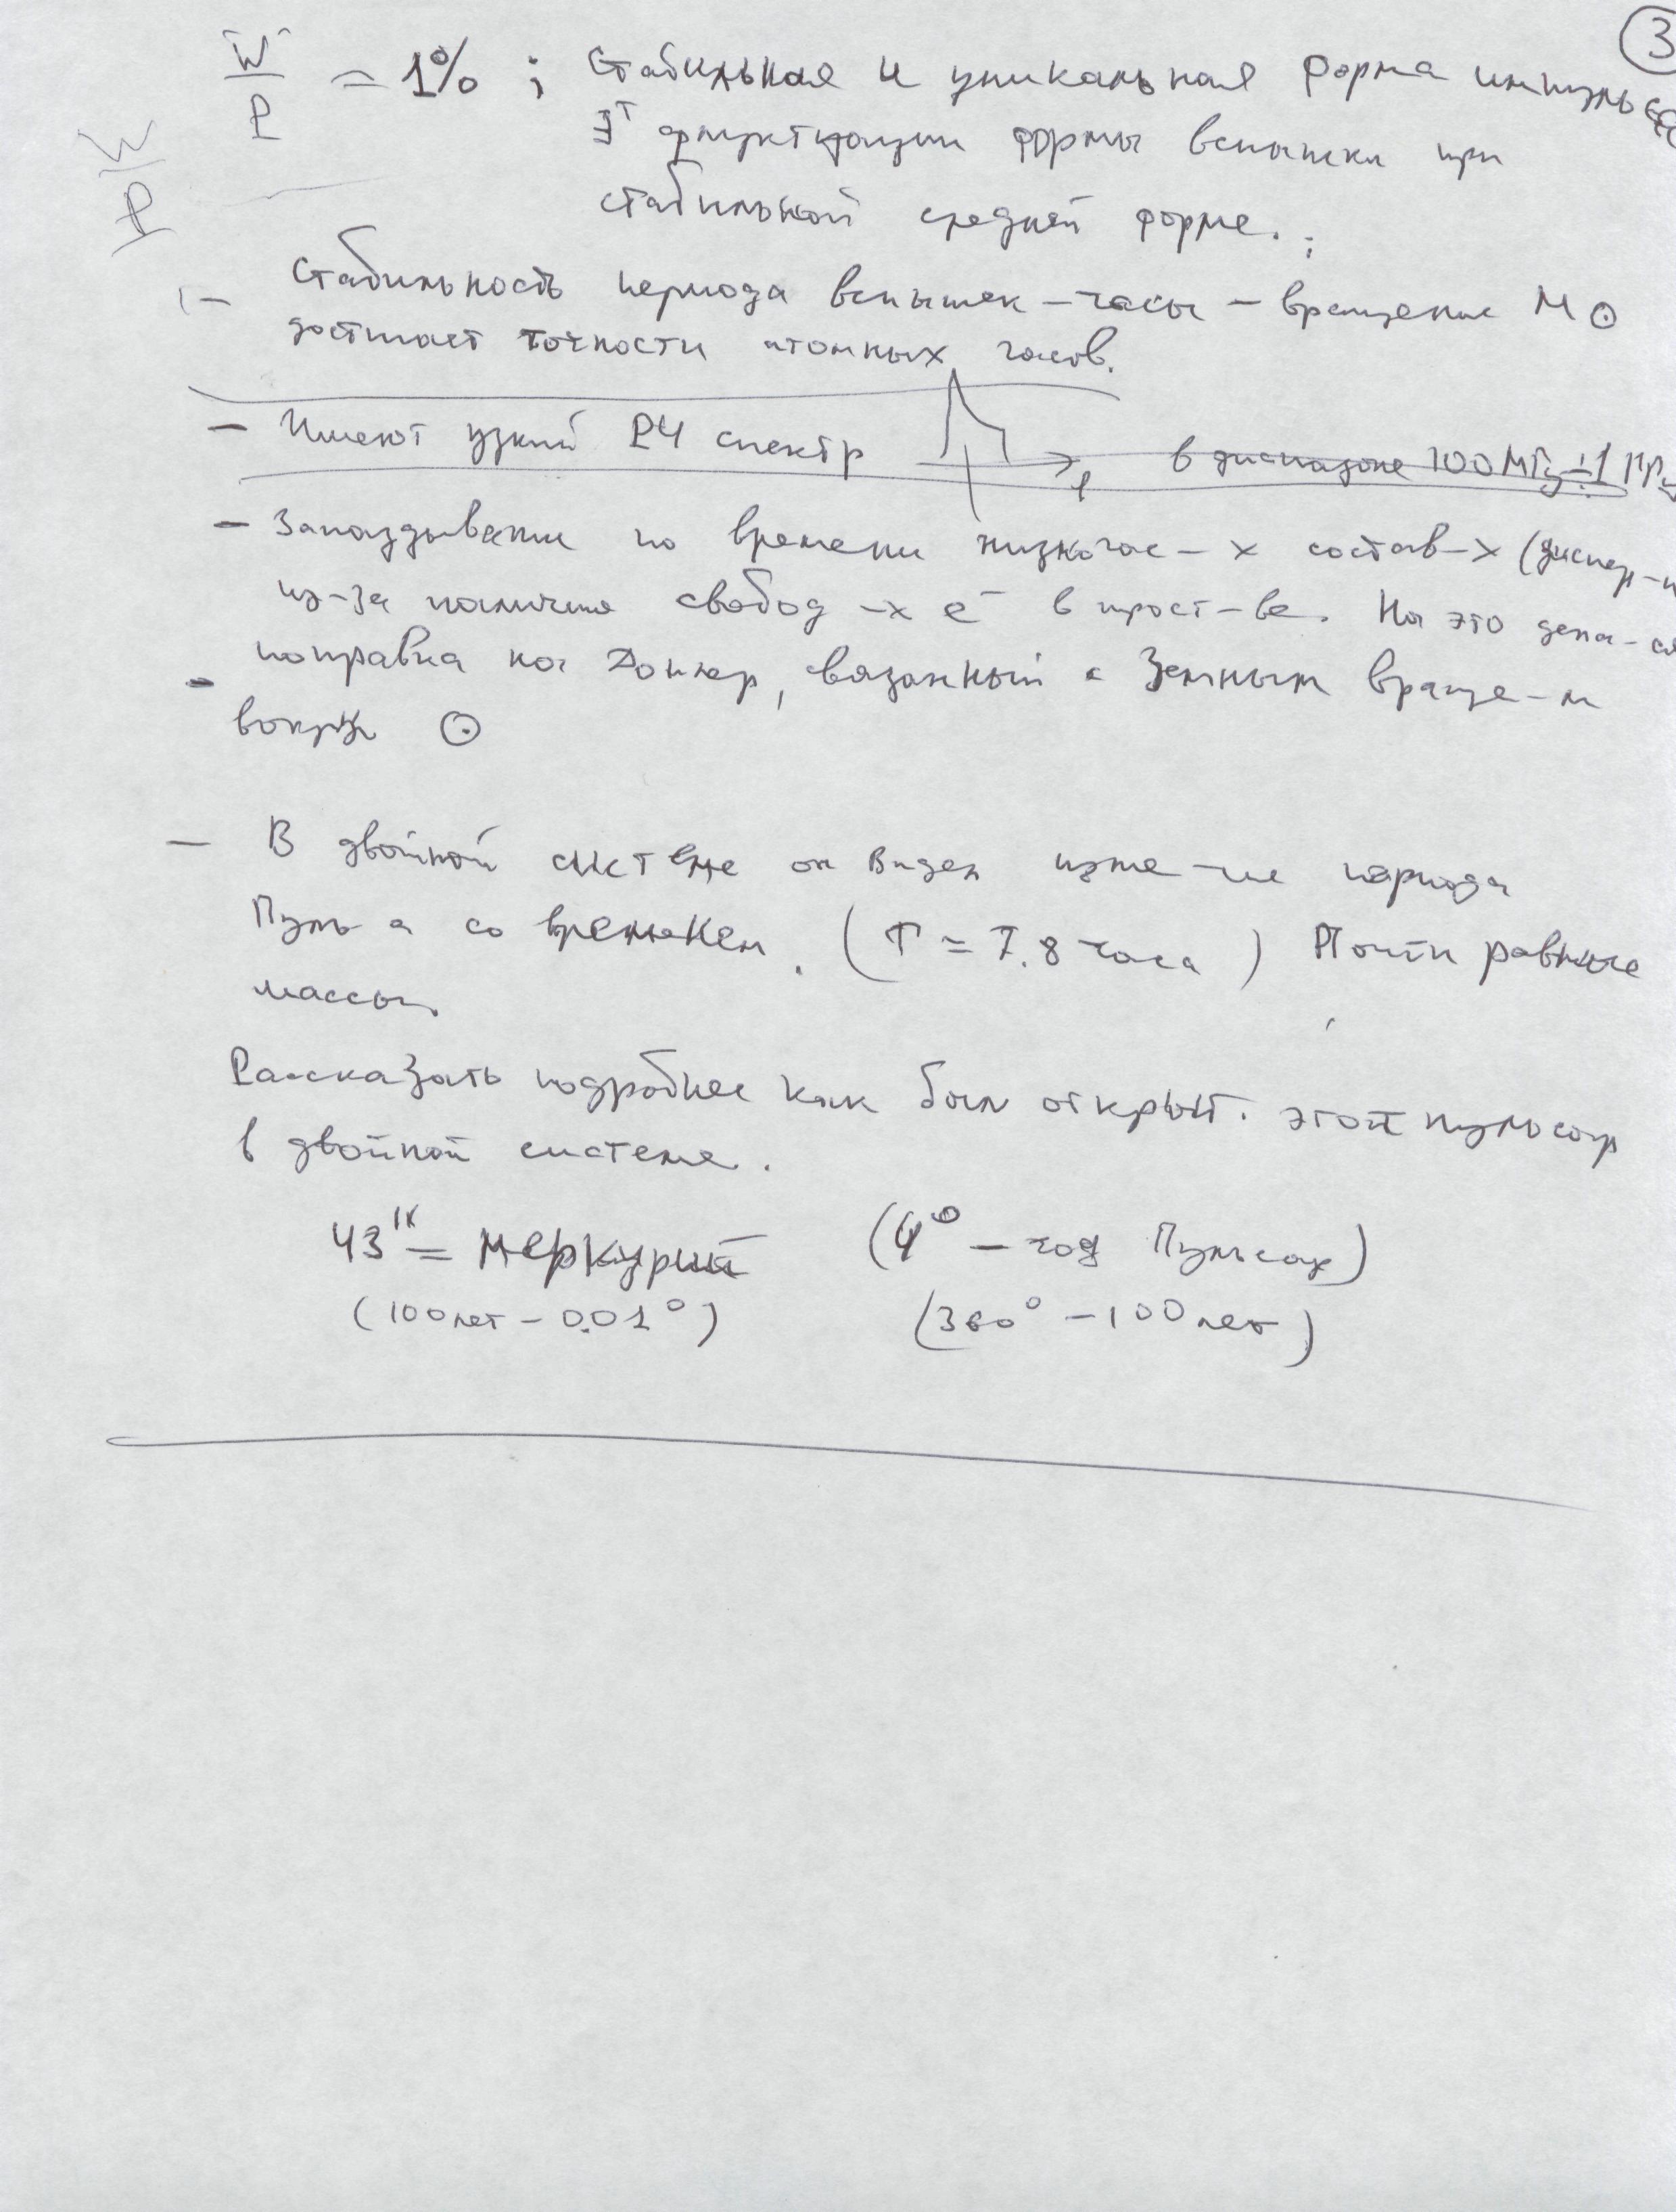 3
W/P = 1% ; Стабильная и уникальная форма импульса
∃т флуктуации формы вспышки при
W/P
стабильной средней форме. ;
- Стабильность периода вспышек – часы – вращение M⊙
достигает точности атомных часов.
- Имеют узкий РЧ спектр в диапазоне 100 МГц ÷ 1 ГГц
- Запаздывание по времени низкочас-х состав-х (диспер-
из-за наличия свобод-х e⁻ в прост-ве. На это дела-ся
- поправка на Доплер, связанный с Земным враще-м
вокруг ⊙
- В двойной системе он виден изме-ие периода
Пуль-а со временем. (T = 7.8 часа) Почти равные
массы.
Рассказать подробнее как был открыт. этот пульсар
в двойной системе.
43'' = Меркурий (4° – год Пульсар)
(100 лет – 0.01°) (360° – 100 лет)